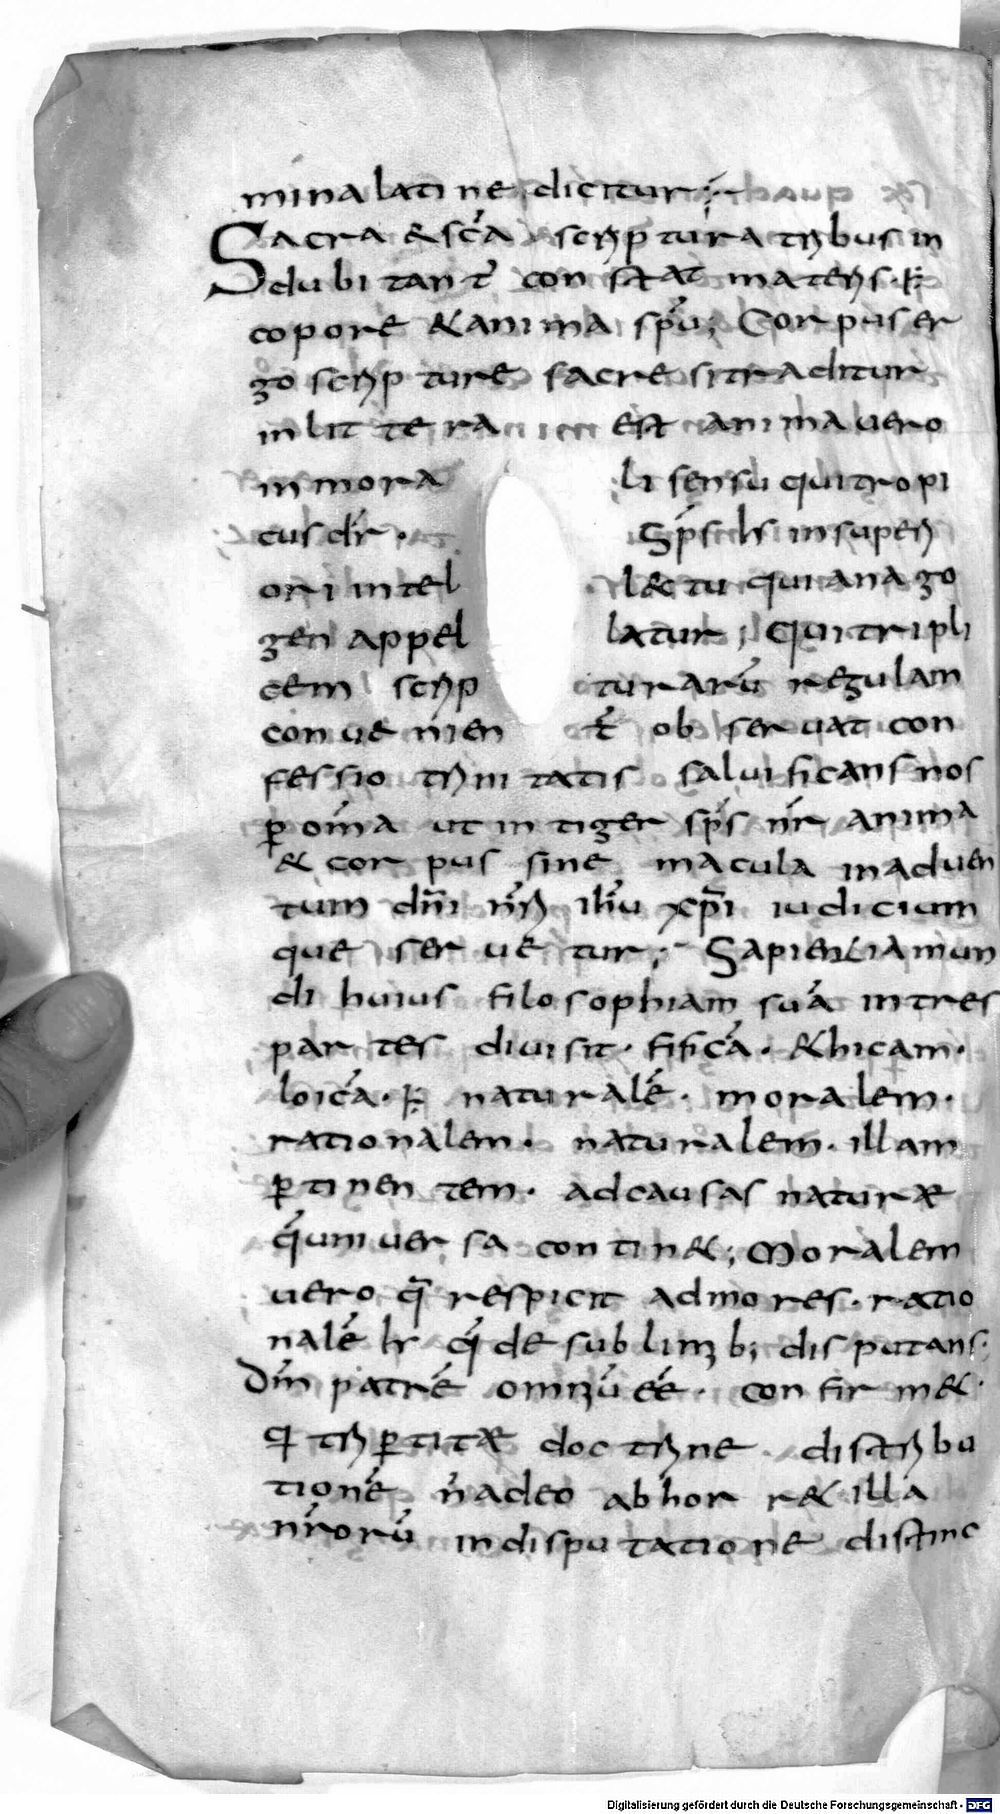 mina latine dicitur;
Sacra & sc̄a scriptura tribus in
dubitant̄ constat materiis·
copore & anima sp̄u; Corpus er
go scripture sacre si traditur
in littera est anima vero
in mora li sensu qui tropi
cus dr̄· Sp̄s h̄ in superi
ori intel l&tu qui anago
gen appel latur; qui tripli
cem scrip turarū regulam
convenien t̄ observat con
fessio trinitatis salvificans nos
ꝑ om̄a ut integer sp̄s nr̄ anima
& corpus sine macula in adven
tum dn̄i nr̄i ih̄u xp̄i iudicium
que servetur; Sapientia mun
di huius filosophiam suā in tres
partes divisit· fificā· &hicam·
loicā· naturalē· moralem·
rationalem· naturalem· illam
ꝑtinentem· ad causas naturæ
q̄ universa contin&; Moralem
vero q̄ respicit ad mores· ratio
nalē h̄ q̄ de sublimib; disputans·
Dm̄ patrē omniū ēē· confirm&·
q triꝑtitæ doctrine distribu
tionē n̄ adeo abhorr& illa
nr̄orū in disputatione distinc
Digitalisierung gefördert durch die Deutsche Forschungsgemeinschaft - DFG